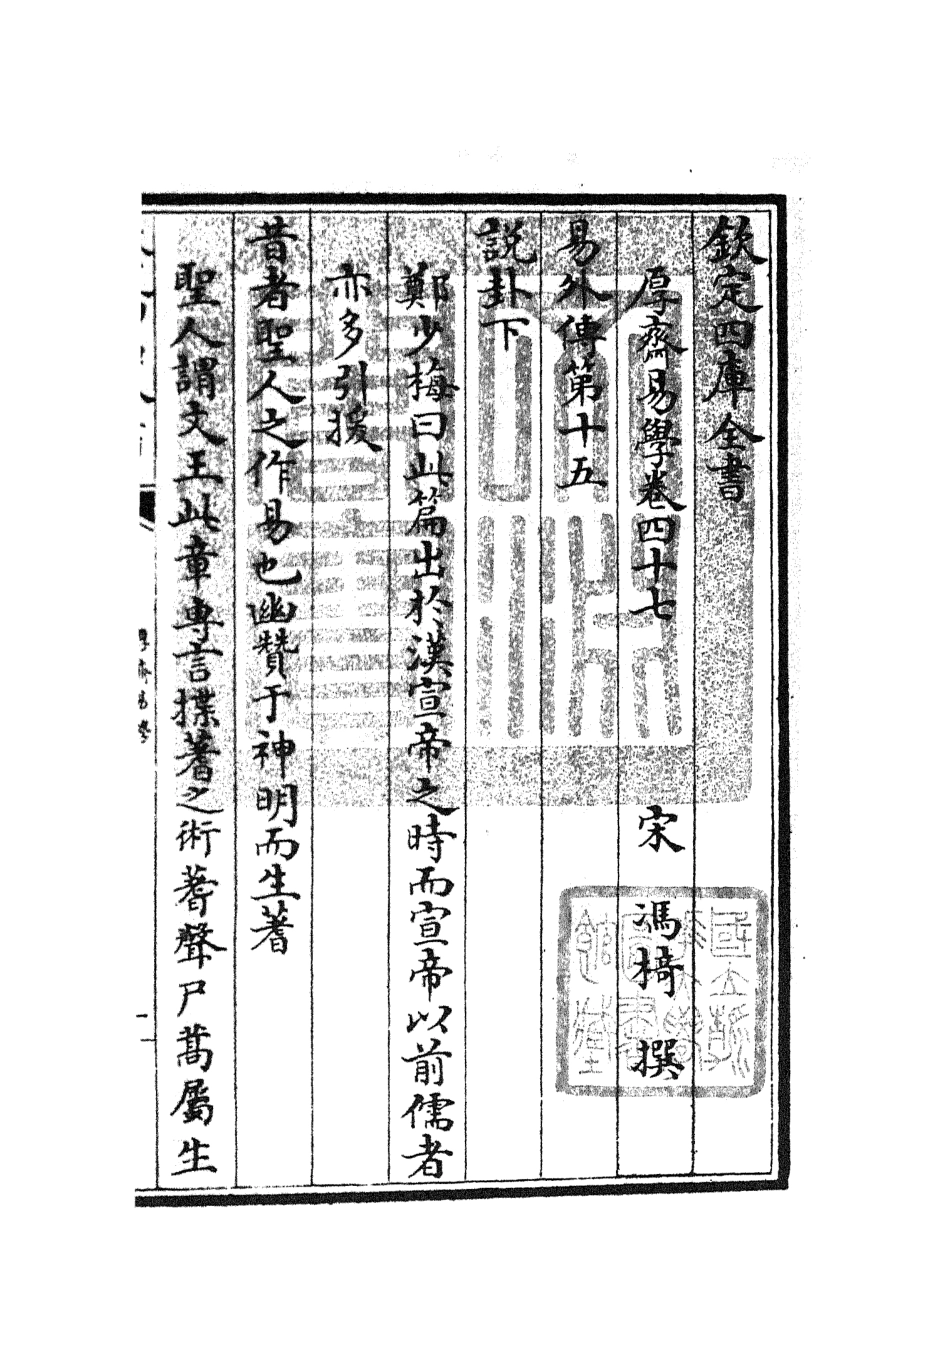 欽定四庫全書
厚齋易學卷四十七
宋 馮椅 撰
易外傳第十五
說卦下
鄭少梅曰此篇出於漢宣帝之時而宣帝以前儒者
亦多引援
昔者聖人之作易也幽贊于神明而生蓍
聖人謂文王此章專言揲蓍之術蓍聲尸蒿屬生